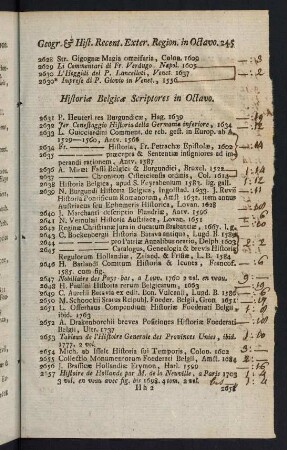 Geogr. & Hist. Recent. Exter. Region. in Octavo. 245
2628 Str. Gigognæ Magia omnifaria, Colon. 1609
2629 Li Commentari di Fr. Verdugo. Napol. 1605
2630 L'Heggidi del P. Lancelloti, Venet. 1637
2630* Imprese di P. Giovio in Venet., 1556
Historiæ Belgicæ Scriptores in Octavo.
2631 P. Heuteri res Burgundicæ, Hag. 1639
2632 Jer Conestaggio Historia della Germania inferiore, 1634
2633 L. Guicciardini Comment. de reb. gest. in Europ. ab A
1529—1560, Antv. 1566
2634 Fr. Historia, Fr. Petrarchæ Epistolæ, 1601
2635 præcepta & Sententiæ insigniores ad im-
perandi rationem, Antv. 1587
2636 A. Miræi Fasti Belgici & Burgundici, Bruxel. 1622
2637 Chronicon Cisterciensis ordin., Col. 1614
2638 Historia Belgica, apud S. Feyrabenium, 1583. lig. gall.
2639 N. Burgundi Historia Belgica, Ingolstad. 1633. J. Brevii
Historia Pontificum Romanorum, Antv. 1632. item annus
austriacus seu Ephemeris Historica, Lovan. 1628
2640 J. Marchantii descriptio Flandriæ, Antv. 1596
2641 N. Vernulæi Historia Austriaca, Lovan. 1651
2642 Regimæ Christinæ jura in ducatum Brabantiæ, 1667. l. g.
2643 C. Bockenbergii Historia Batava antiqua, Lugd. B. 1589
2644 pro Patriæ Annalibus oratio, Delph. 1609
2645 Catalogus, Genealogia & brevis Historia
Regulorum Hollandiæ, Zeland. & Frisiæ, L. B. 1584
2646 H. Barlandi Comitum Historia & Icones, Francof.
1585. cum fig.
2647 Nobiliaire des Pays-bas, à Louv. 1760 2 vol. en veau.
2648 H. Paullini Historia rerum Belgicarum, 1663
2649 C. Aurelii Batava ex edit. Bon. Vulcanii, Lugd. B. 1586
2650 M. Schoockii Status Reipubl. Foeder. Belgii, Gron. 1651
2651 L. Offerhaus Compendium Historiæ Foederati Belgii,
ibid. 1763
2652 A. Drakenborchii breves Positiones Historiæ Foederati
Belgii, Ultr. 1737
2653 Tableau de l'Histoire Generale des Provinces Unies, ibid.
1777. 2 vol.
2654 Mich. ab Isselt Historia sui Temporis, Colon. 1602
2655 Collectio Monumentorum Foederati Belgii, Amst. 1684
2656 J. Brassicæ Hollandiæ Etymon, Harl. 1599
2657 Histoire de Hollande par M. de la Neuville, à Paris 1703
3 vol. en veau avec fig. bis-1698. 4 tom. 2 vol.
H h 2
2658